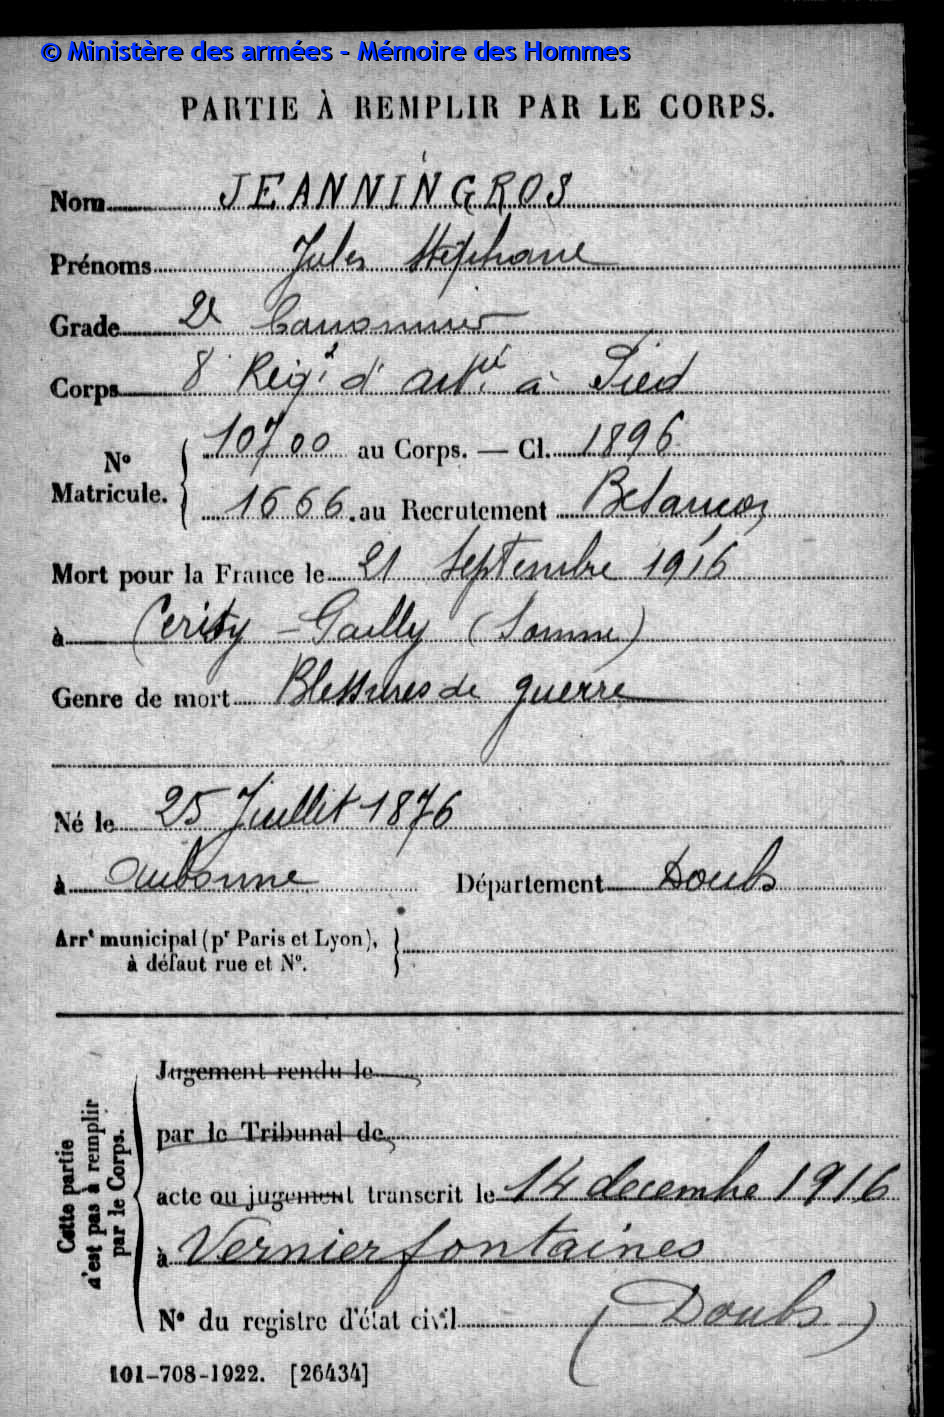 © Ministère des armées - Mémoire des Hommes
PARTIE À REMPLIR PAR LE CORPS.
Nom JEANNINGROS
Prénoms Jules Stéphane
Grade 2e Canonnier
Corps 8 Régt d'artie à Pied
N° Matricule. { 10700 au Corps. — Cl. 1896
1666. au Recrutement Besançon
Mort pour la France le 21 Septembre 1916
à Cerisy - Gailly (Somme)
Genre de mort Blessures de guerre
Né le 25 Juillet 1876
à Aubonne Département Doubs
Arrt municipal (pr Paris et Lyon), }
à défaut rue et N°.
Cette partie
n'est pas à remplir
par le Corps.
Jugement rendu le
par le Tribunal de
acte ou jugement transcrit le 14 decembre 1916
à Vernierfontaines
N° du registre d'état civil (Doubs)
101-708-1922. [26434]